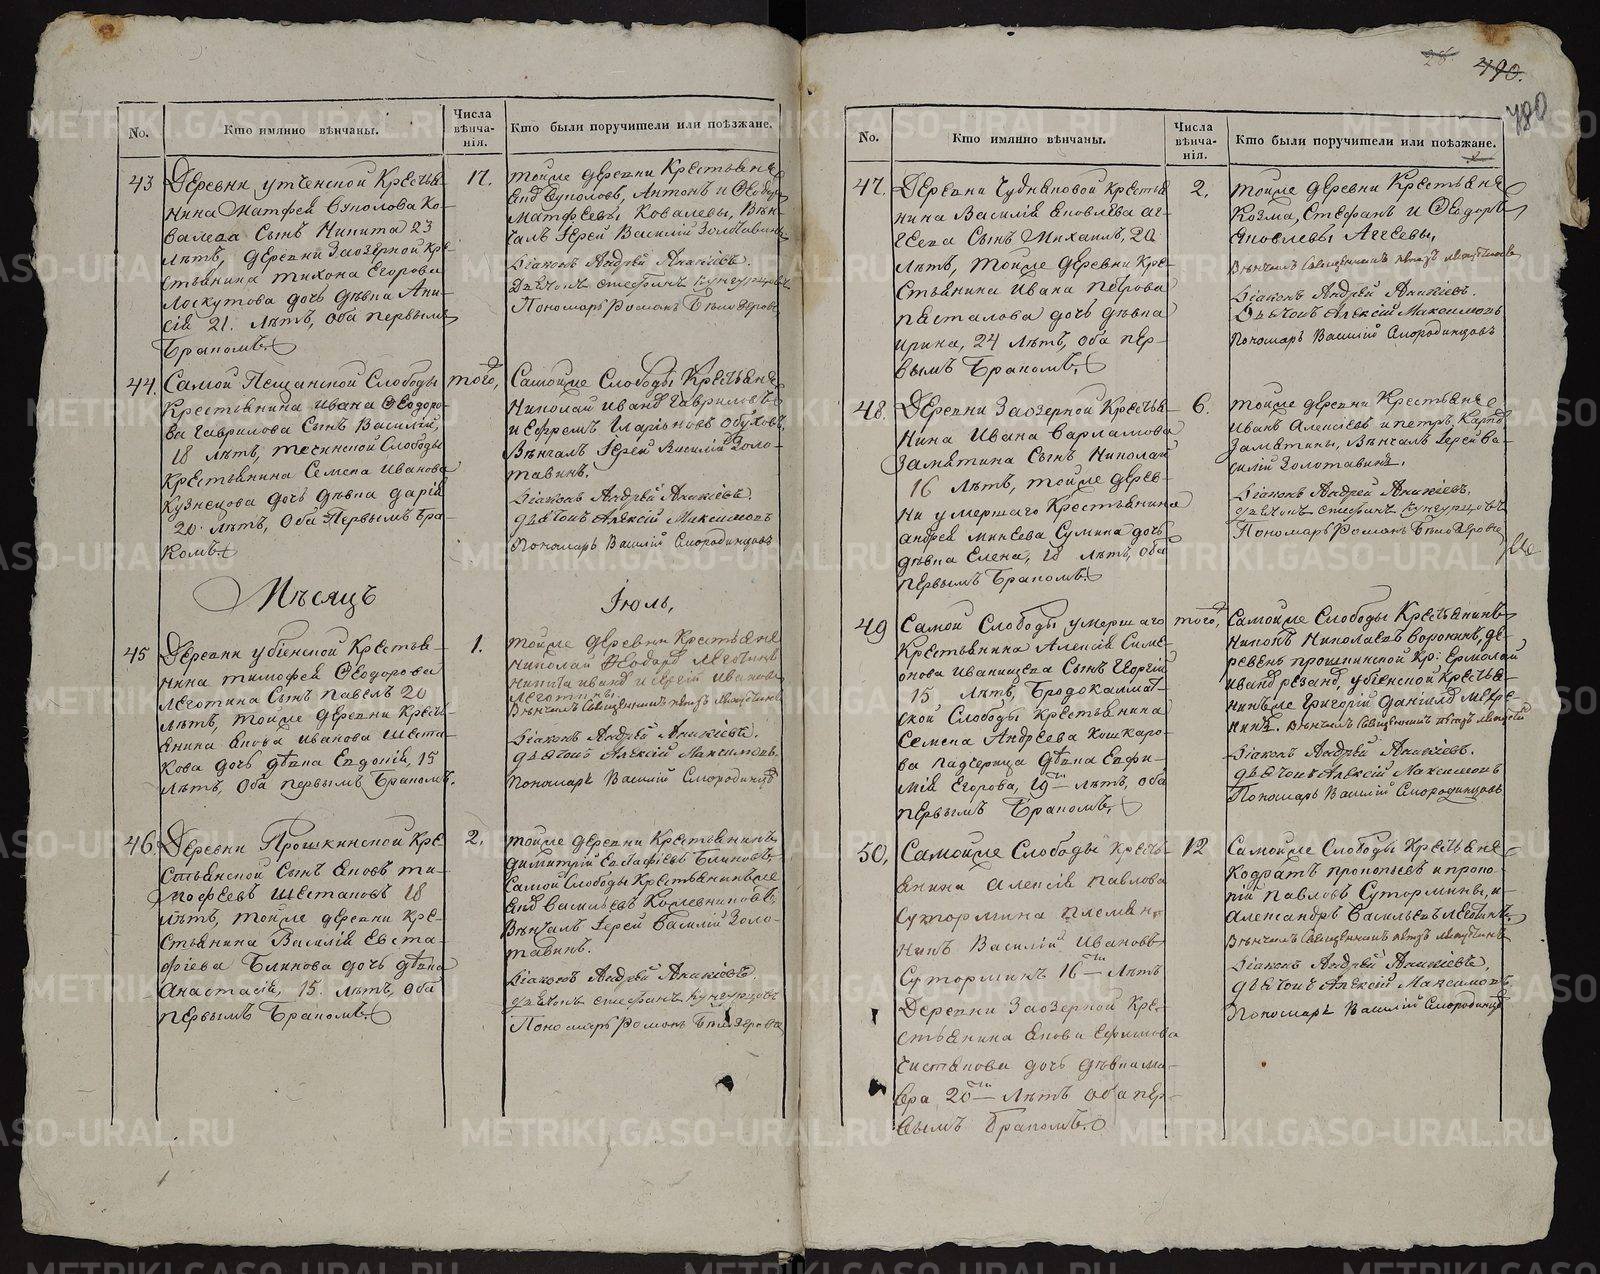 No.
Кто имянно вѣнчаны.
Числа
вѣнча-
нія.
Кто были поручители или поѣзжане.
43
Деревни утченской Крестья-
нина Матфея
валева Сынъ Никита 23
лѣтъ, деревни Заозерной Кре-
стьянина тихона Егорова
Лоскутова дочь дѣвка Ани-
сія 21. лѣтъ, оба первымъ
Бракомъ.
17.
тойже деревни Крестьяне
Антонъ и Ѳеодоръ
Матфеевы Ковалевы, Вѣн-
чалъ Іерей Василій Золотавинъ
Діаконъ Андрей Ананіевъ.
Дьячокъ стефанъ Кунгурцовъ
Пономарь Романъ Бѣлозеровъ
44.
Самой Пещанской Слободы
Крестьянина ивана Ѳеодоро-
ва Гаврилова Сынъ Василій,
18 лѣтъ, теченской Слободы
Крестьянина Семена Иванова
Кузнецова дочь дѣвка дарія
20. лѣтъ, Оба Первымъ Бра-
комъ
того,
Самойже Слободы Крестьяне
Николай Ивановъ Гавриловъ
и Ефремъ Иларіоновъ Обуховъ
Вѣнчалъ Іерей Василій Золо-
тавинъ.
Діаконъ Андрей Ананіевъ.
дьячокъ Алексій Максимовъ
Пономарь Василій Смородинцовъ
Мѣсяцъ
Іюль,
45
Деревни убіенской Крестья-
нина тимофея Ѳеодорова
Леготина Сынъ Павелъ 20
лѣтъ, тойже деревни Кресть-
янина Якова Иванова Шеста-
кова дочь дѣвка Евдокія, 15
лѣтъ, Оба первымъ Бракомъ.
1.
тойже деревни Крестьяне
Николай Ѳеодоровъ Леготинъ
никита ивановъ и сергій Ивановъ
Леготины.
Вѣнчалъ Священникъ петръ
Діаконъ Андрей Ананіевъ.
дьячокъ Алексій Максимовъ
Пономарь Василій Смородинцовъ
46.
Деревни Прошкинской Кре-
стьянской Сынъ Яковъ ти-
мофеевъ Шестаковъ 18
лѣтъ, тойже деревни Кре-
стьянина Василія Евста-
фіева Блинова дочь дѣвка
Анастасія, 15. лѣтъ, оба
первымъ Бракомъ.
2.
тойже деревни Крестьянинъ
димитрій Евстафіевъ Блиновъ,
Самой Слободы Крестьянинъ же
Васильевъ Кожевниковъ
Вѣнчалъ Іерей Василій Золо-
тавинъ.
Діаконъ Андрей Ананіевъ.
дьячокъ стефанъ Кунгурцовъ
Пономарь Романъ Бѣлозеровъ
26.
490.
480
No.
Кто имянно вѣнчаны.
Числа
вѣнча-
нія.
Кто были поручители или поѣзжане.
47.
Деревни Чудняковой Крестья-
нина Василія Яковлева Аг-
геева Сынъ Михаилъ, 20
лѣтъ, тойже деревни Кре-
стьянина Ивана Петрова
Песталова дочь дѣвка
ирина, 24 лѣтъ, оба пер-
вымъ Бракомъ.
2.
тойже деревни Крестьяне
Козма, Стефанъ и Ѳеодоръ
Яковлевы Аггеевы,
Вѣнчалъ Священникъ петръ
Діаконъ Андрей Ананіевъ.
Дьячокъ Алексій Максимовъ
Пономарь Василій Смородинцовъ
48.
Деревни Заозерной Крестья-
нина Ивана Варламова
Замятина Сынъ Николай
16 лѣтъ, тойже дерев-
ни умершаго Крестьянина
андрея минеева Сумина дочь
дѣвка Елена, 18 лѣтъ, оба
первымъ Бракомъ.
6.
тойже деревни Крестьяне
Иванъ Алексіевъ и петръ
Замятины, Вѣнчалъ Іерей Ва-
силій Золотавинъ.
Діаконъ Андрей Ананіевъ.
дьячокъ стефанъ Кунгурцовъ
Пономарь Романъ Бѣлозеровъ
49
Самой Слободы умершаго
Крестьянина Алексія Симе-
онова Иванищева Сынъ Георгій
15 лѣтъ, Бродокалмат-
ской Слободы Крестьянина
Семена Андреева Кошкаро-
ва падчерица дѣвка Евфи-
мія Егорова, 19 лѣтъ, оба
первымъ Бракомъ,
того,
Самойже Слободы Крестьянинъ
Никонъ Николаевъ Воронинъ, де-
ревень прошкинской кр: Ермолай
ивановъ убіенской Крестья-
нинъ же Григорій Даніиловъ
Вѣнчалъ Священникъ петръ
Діаконъ Андрей Ананіевъ.
дьячокъ Алексій Максимовъ
Пономарь Василій Смородинцовъ
50,
Самойже Слободы Кресть-
янина Алексія Павлова
Сутормина племян-
никъ Василій Ивановъ
Суторминъ 16 лѣтъ
Деревни Заозерной Кре-
стьянина Якова Ефимова
Чистякова дочь дѣвка ма-
вра 20 лѣтъ оба пер-
вымъ Бракомъ.
12
Самойже Слободы Крестьяне
Кодратъ прокопьевъ и проко-
пій Павловъ Сутормины, и
Александръ Васильевъ Леготинъ
Вѣнчалъ Священникъ петръ
Діаконъ Андрей Ананіевъ,
дьячокъ Алексій Максимовъ
Пономарь Василій Смородинцовъ
METRIKI.GASO-URAL.RU